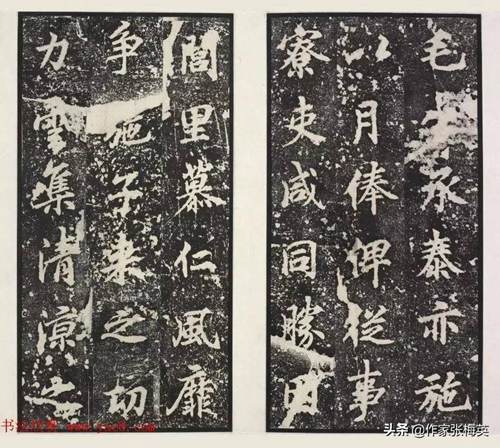 毛承泰亦施
以月俸俾從事
寮吏咸同勝因
閭里慕仁風靡
争施子来之功
力雲集清凉之
头条 @作家张梅英